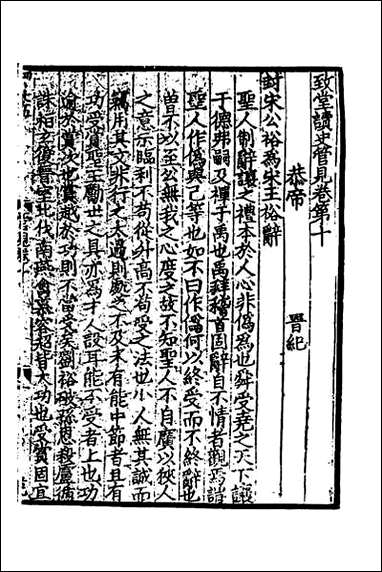 致堂讀史管見卷第十
恭帝　晉紀
封宋公裕為宋王裕辭
聖人制辭讓之禮本於人心非偽為也舜受堯之天下讓
于德弗嗣及禪子禹也禹拜稽首固辭自不情者觀焉謂
聖人作偽與己等也如不曰作偽何以終受而不終辭也
曽不以至公無我之心度之故不知聖人不自廣以狹人
之意示臨利不苟從升高不苟受之法也小人無其誠而
竊用其文未行之太過則處之不及未有能中節者且有
功受賞聖王勵世之具亦為才人設耳能不受者上也功
逾於賞次也賞越於功則不當受矣劉裕破孫恩殄盧循
誅相玄復晉室北伐南燕禽慕容超皆大功也受賞固宜